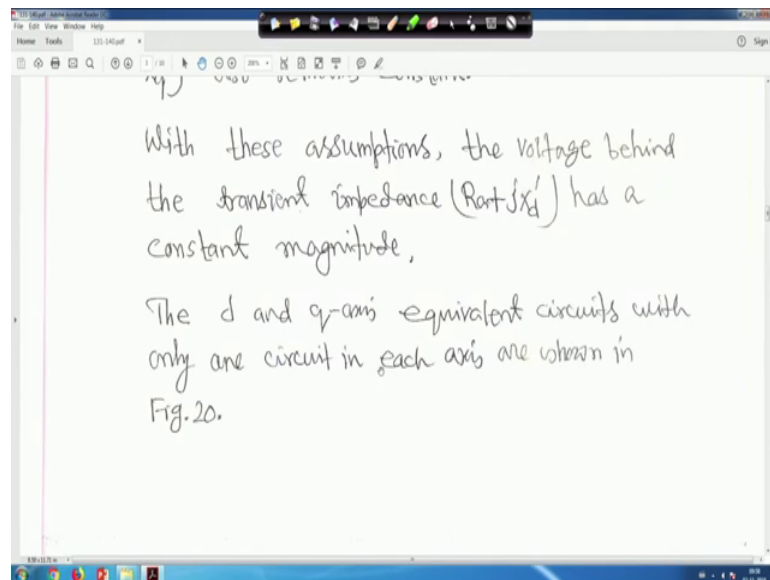 131-140.pdf - Adobe Acrobat Reader DC
File Edit View Window Help
Home Tools 131-140.pdf × Sign
With these assumptions, the voltage behind
the transient impedance (Ra+jXd') has a
constant magnitude.
The d and q-axis equivalent circuits with
only one circuit in each axis are shown in
Fig. 20.